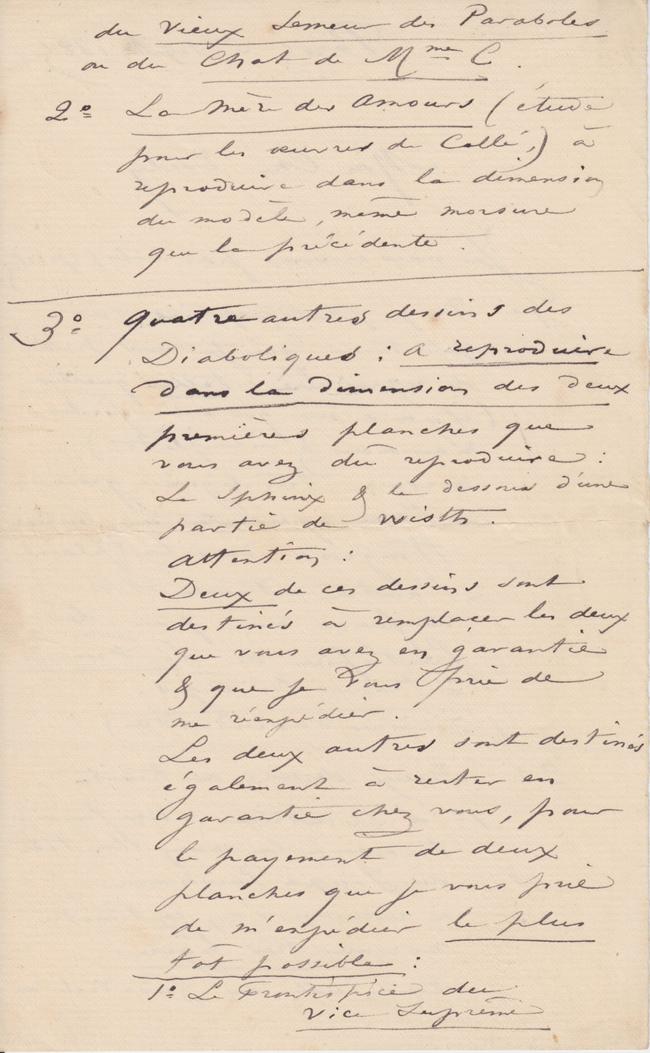 du Vieux Semeur des Paraboles
ou du Chat de Mme C.
2º La Mère des Amours (étude
pour les œuvres de Collé,) à
reproduire dans la dimension
du modèle, même morsure
que la précédente.
3º quatre autres dessins des
Diaboliques ; a reproduire
dans la dimension des deux
premières planches que
vous avez dû reproduire :
Le Sphinx & le dessous d'une
partie de wisth.
attention :
Deux de ces dessins sont
destinés à remplacer les deux
que vous avez en garantie
& que je vous prie de
me réexpédier.
Les deux autres sont destinés
également à rester en
garantie chez vous, pour
le payement de deux
planches que je vous prie
de m'expédier le plus
tôt possible :
1º Le Frontispice du
Vice Suprême